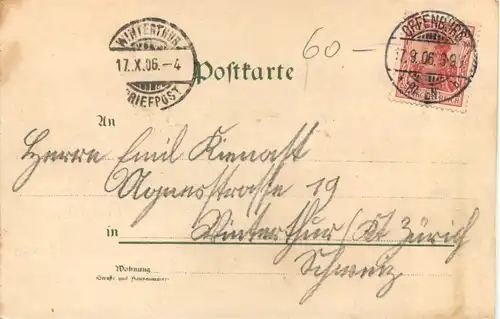 WINTERTHUR
17.X.06.-4
BRIEFPOST
60-
OFFENBURG
Postkarte
An
Herrn Emil Kienast
Agnesstrasse 19
in Winterthur /Kt Zürich
Schweiz
Wohnung
(Straße und Hausnummer)